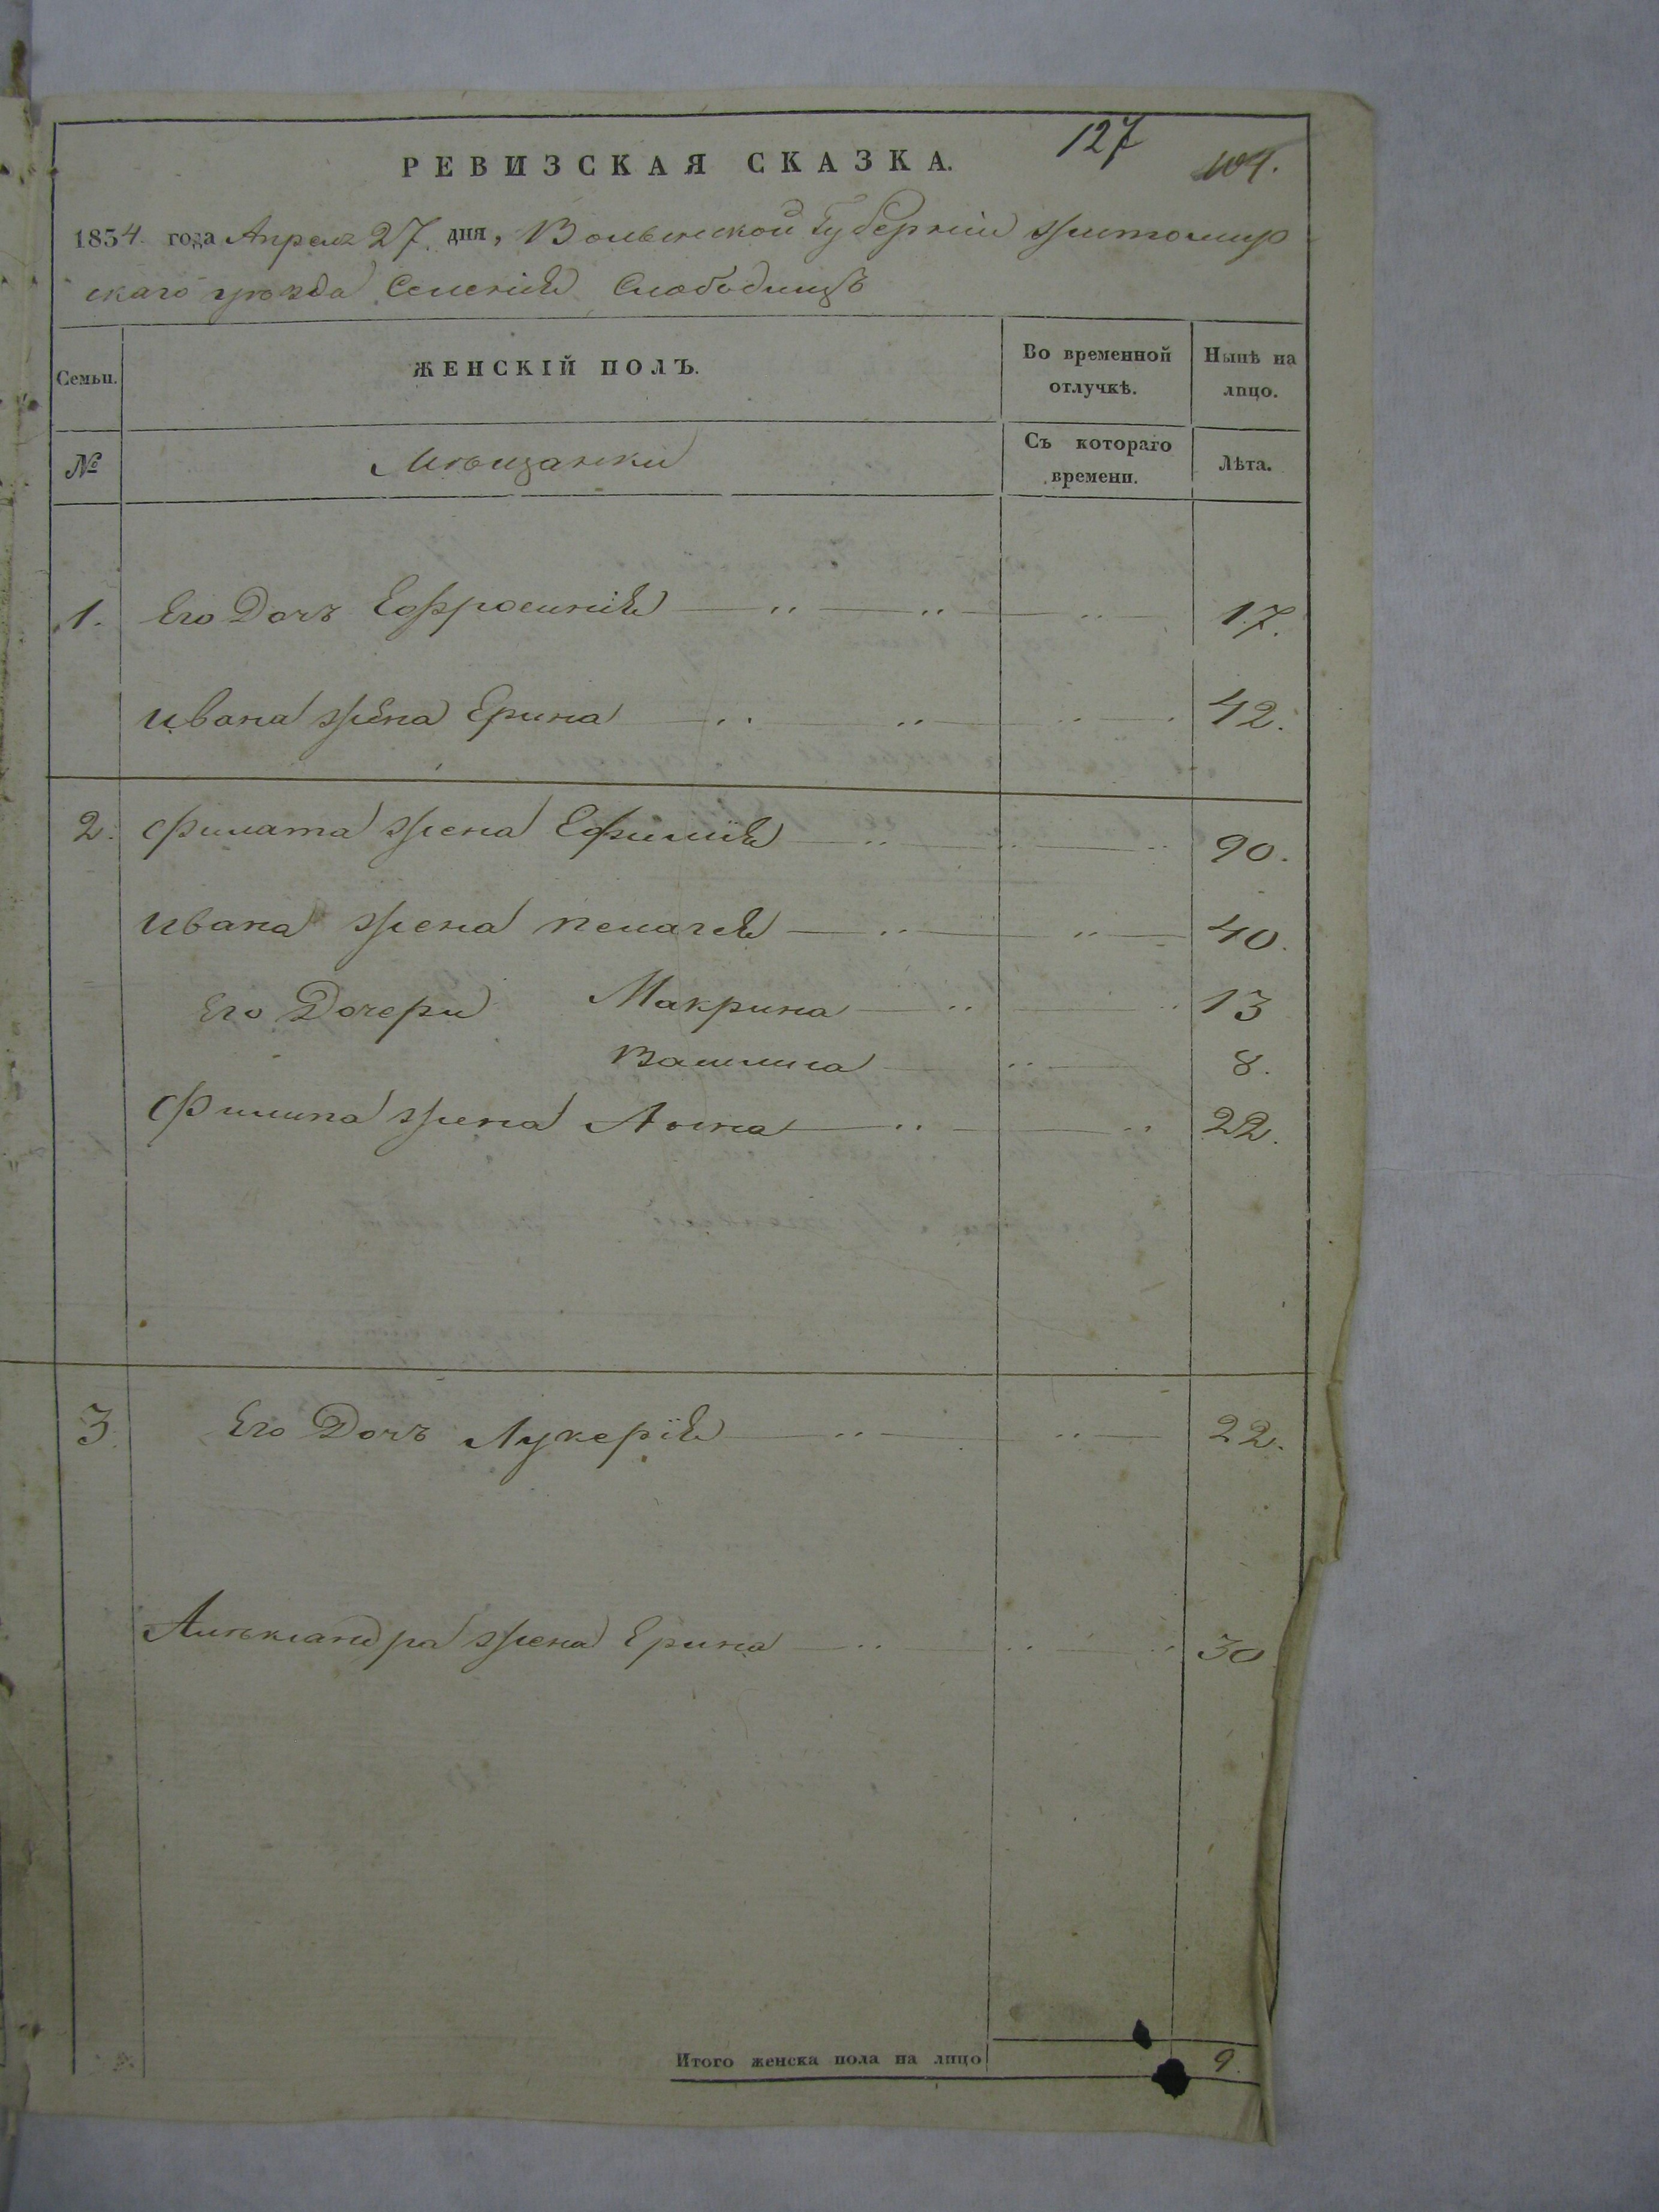 127
104.
РЕВИЗСКАЯ СКАЗКА.
1854 года Апреля 27 дня, Волынской Губерніи Житомир
скаго уѣзда Селенія Слободищъ
Семьи.
ЖЕНСКІЙ ПОЛЪ.
Во временной отлучкѣ.
Нынѣ на лицо.
№
Мѣщанки
Съ котораго времени.
Лѣта.
1. Его Дочъ Ефросинія 17.
Ивана жена Ерина 42.
2. Филата жена Ефимія 90.
Ивана жена Пелагея 40.
Его Дочери Макрина 13
8.
Филипа жена Анна 22.
3 Его Дочъ Лукерія 22.
Алѣксандра жена Ерина 30
Итого женска пола на лицо 9.